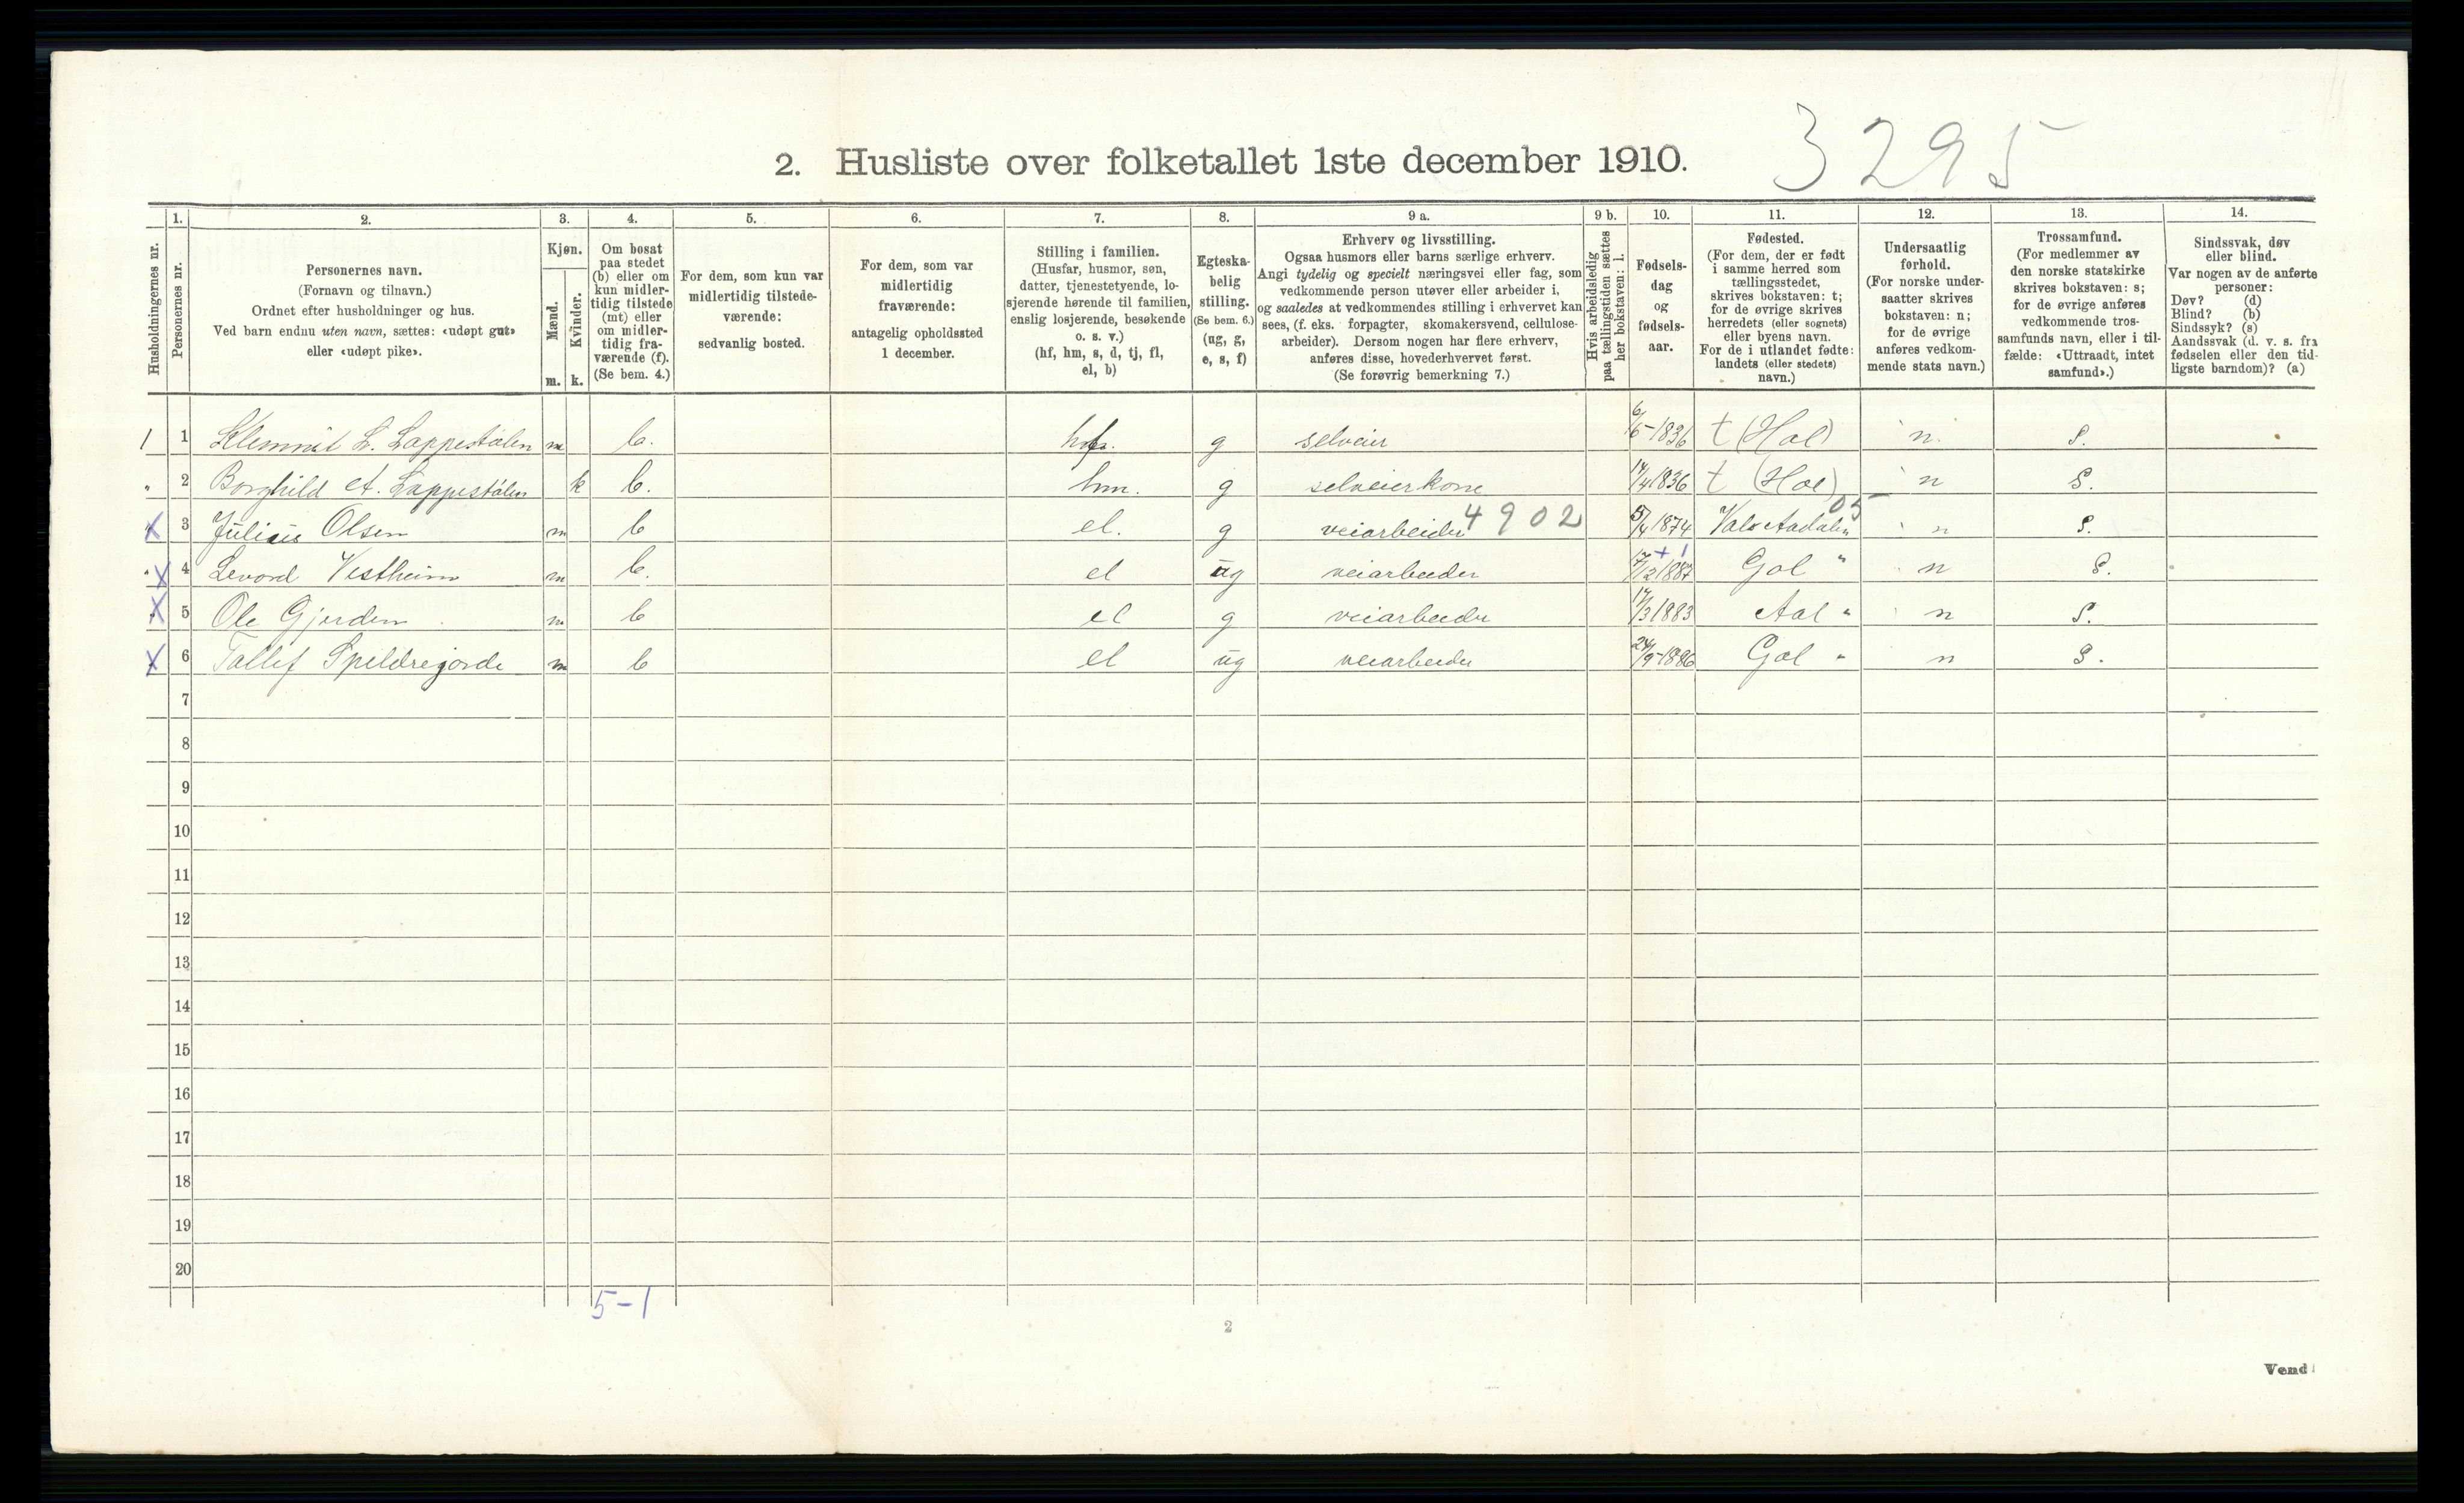 3295
2. Husliste over folketallet 1ste december 1910.
Husholdningernes nr.
1.
Personernes nr.
2.
Personernes navn.
(Fornavn og tilnavn.)
Ordnet efter husholdninger og hus.
Ved barn endnu uten navn, sættes: «udøpt gut»
eller «udøpt pike».
3.
Kjøn.
Mænd.
Kvinder.
m. k.
4.
Om bosat
paa stedet
(b) eller om
kun midler-
tidig tilstede
(mt) eller
om midler-
tidig fra-
værende (f).
(Se bem. 4.)
5.
For dem, som kun var
midlertidig tilstede-
værende:
sedvanlig bosted.
6.
For dem, som var
midlertidig
fraværende:
antagelig opholdssted
1 december.
7.
Stilling i familien.
(Husfar, husmor, søn,
datter, tjenestetyende, lo-
sjerende hørende til familien,
enslig losjerende, besøkende
o. s. v.)
(hf, hm, s, d, tj, fl,
el, b)
8.
Egteska-
belig
stilling.
(Se bem. 6.)
(ug, g,
e, s, f)
9 a.
Erhverv og livsstilling.
Ogsaa husmors eller barns særlige erhverv.
Angi tydelig og specielt næringsvei eller fag, som
vedkommende person utøver eller arbeider i,
og saaledes at vedkommendes stilling i erhvervet kan
sees, (f. eks. forpagter, skomakersvend, cellulose-
arbeider). Dersom nogen har flere erhverv,
anføres disse, hovederhvervet først.
(Se forøvrig bemerkning 7.)
9 b.
Hvis arbeidsledig
paa tællingstiden sættes
her bokstaven: l.
10.
Fødsels-
dag
og
fødsels-
aar.
11.
Fødested.
(For dem, der er født
i samme herred som
tællingsstedet,
skrives bokstaven: t;
for de øvrige skrives
herredets (eller sognets)
eller byens navn.
For de i utlandet fødte:
landets (eller stedets)
navn.)
12.
Undersaatlig
forhold.
(For norske under-
saatter skrives
bokstaven: n;
for de øvrige
anføres vedkom-
mende stats navn.)
13.
Trossamfund.
(For medlemmer av
den norske statskirke
skrives bokstaven: s;
for de øvrige anføres
vedkommende tros-
samfunds navn, eller i til-
fælde: «Uttraadt, intet
samfund».)
14.
Sindssvak, døv
eller blind.
Var nogen av de anførte
personer:
Døv? (d)
Blind? (b)
Sindssyk? (s)
Aandssvak (d. v. s. fra
fødselen eller den tid-
ligste barndom)? (a)
1 1 L. Lappestølen m b. g selveier 6/5-1836 t (Hol) n. s.
" 2 Borghild A. Lappestølen k b. hm. g selveierkone 14/4 1836 t (Hol) n s.
X 3 Julius Olsen m b el. g veiarbeider 4902 5/4 1874 Aadalen 05 n s.
" X 4 Levord Vestheim m b. el ug veiarbeider 17/12 1887 + 1 Gol " n s.
X 5 Ole Gjerden m b el g veiarbeider 17/3 1883 Aal " n s.
X 6 Tollif Speldregjorde m b el ug veiarbeider 24/9-1886 Gol " n s.
7
8
9
10
11
12
13
14
15
16
17
18
19
20
5-1
2
Vend